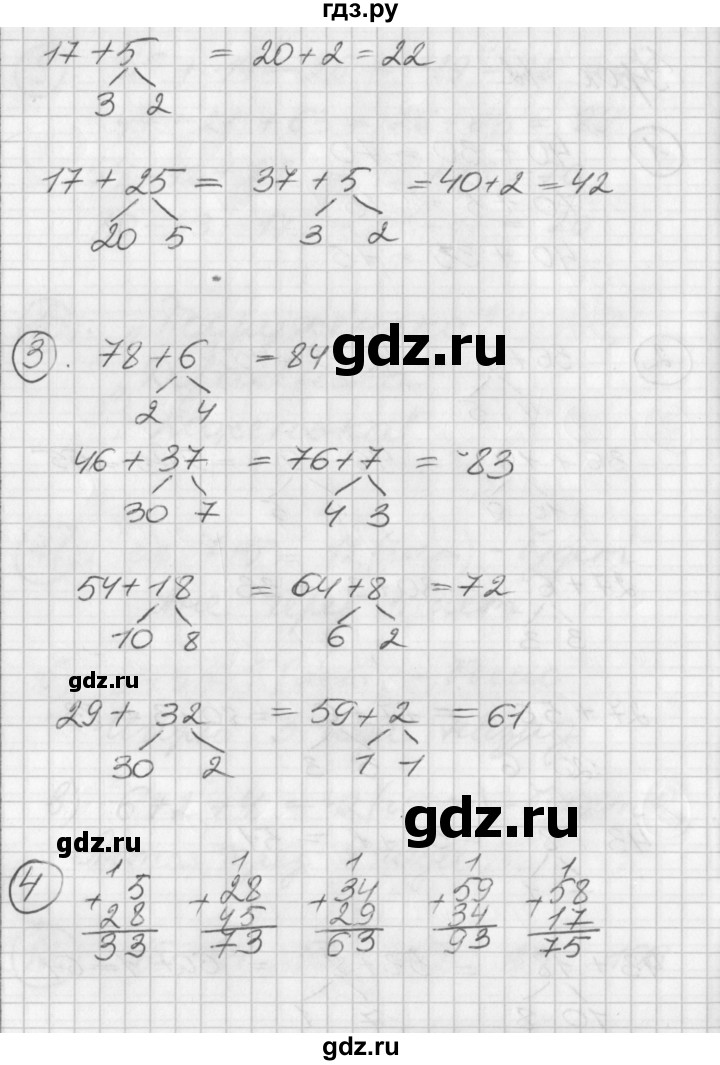 гдз.ру
17+5 = 20+2=22
3 2
17+25 = 37+5 =40+2=42
20 5 3 2
3. 78+6 =84
gdz.ru
2 4
46+37 =76+7 = 83
30 7 4 3
54+18 =64+8 =72
10 8 6 2
gdz.ru
29+ 32 =59+2 =61
30 2 1 1
gdz.ru
gdz.ru
4 1 1 1 1 1
+5 +28 +34 +59 +58
28 45 29 34 17
33 73 63 93 75
gdz.ru gdz.ru